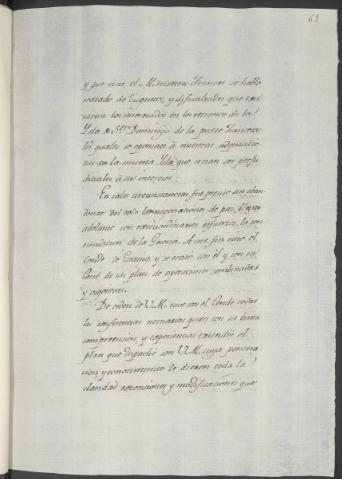 61
y por otra el Ministerio Frances se hallo
rodeado de disgustos, y dificultades que exci
taron los interesados en los terrenos de la
Ysla de Sto. Domingo de la parte Francesa
los quales se oponian à nuestras adquisicio
nes en la misma Ysla que creian ser perju
diciales à sus intereses.
En tales circunstancias fue preciso sin aban
donar del todo las negociaciones de paz, llevar
adelante con extraordinarios esfuerzos, la con
tinuacion de la Guerra. A este fin vino el
Conde de Estaing, y se trató con él y con su
Corte de un plan de operaciones combinadas
y vigorosas.
De orden de V. M. tuve con el Conde todas
las conferencias necesarias quien con su buena
comprension, y experiencias extendió el
plan que despachè con V. M. cuya penetra
cion y conocimiento le dieron toda la
claridad extensiones y modificaciones que